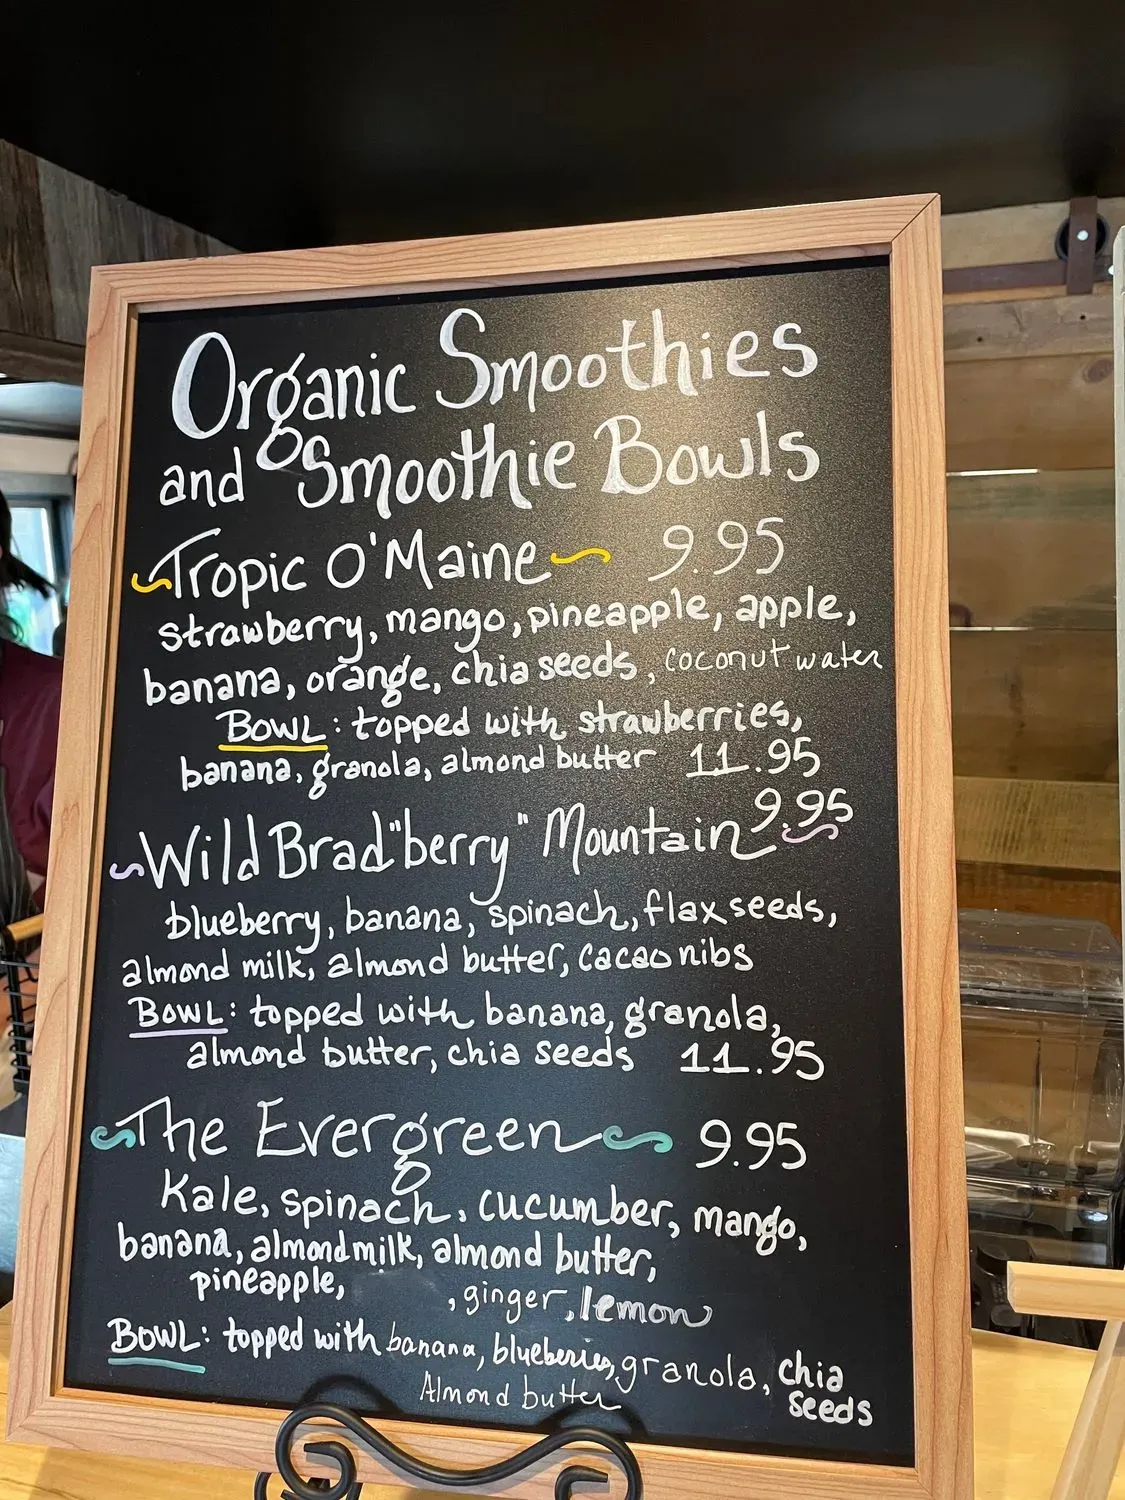 Organic Smoothies
and Smoothie Bowls
Tropic O'Maine 9.95
strawberry, mango, pineapple, apple,
banana, orange, chia seeds, coconut water
BOWL: topped with strawberries,
banana, granola, almond butter 11.95
Wild Brad"berry" Mountain 9.95
blueberry, banana, spinach, flax seeds,
almond milk, almond butter, cacao nibs
BOWL: topped with banana, granola,
almond butter, chia seeds 11.95
The Evergreen 9.95
Kale, spinach, cucumber, mango,
banana, almond milk, almond butter,
pineapple, , ginger, lemon
BOWL: topped with banana, blueberries, granola, chia
seeds
Almond butter